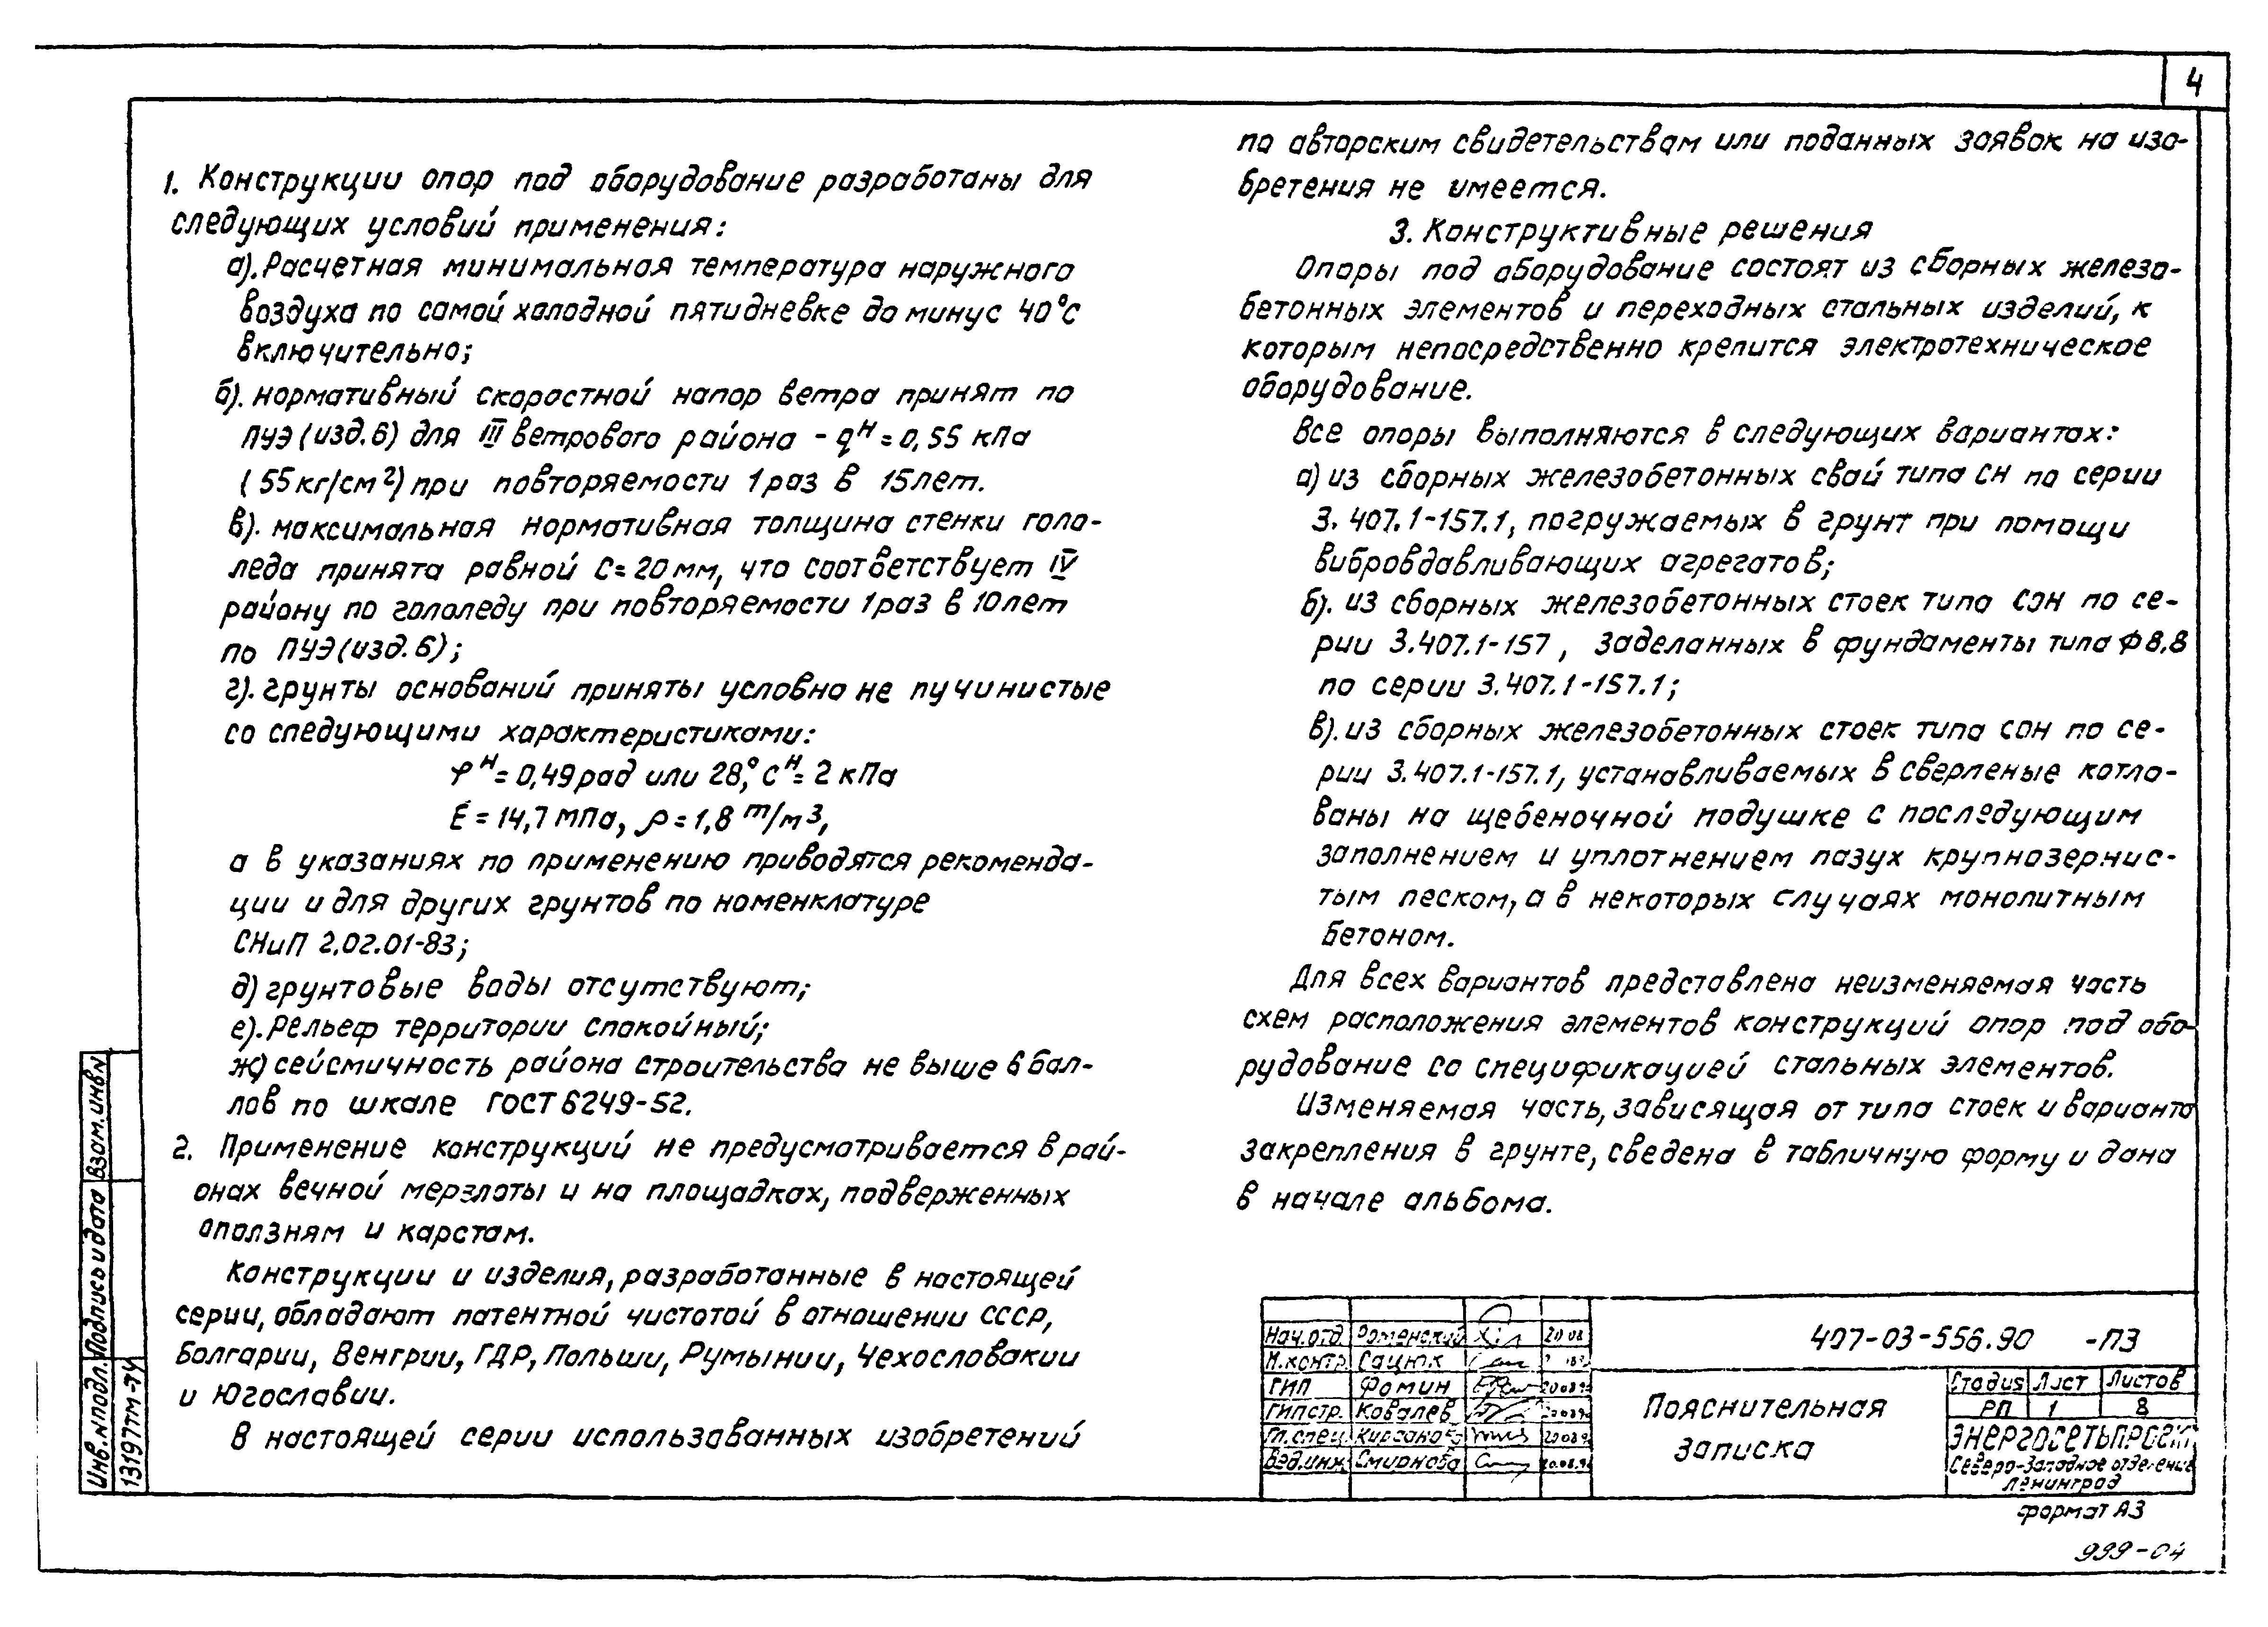 4
1. Конструкции опор под оборудование разработаны для
следующих условий применения:
а). Расчетная минимальная температура наружного
воздуха по самой холодной пятидневке до минус 40°С
включительно;
б). нормативный скоростной напор ветра принят по
ПУЭ (изд. 6) для III ветрового района - qᴴ = 0,55 кПа
(55 кг/см²) при повторяемости 1 раз в 15 лет.
в). максимальная нормативная толщина стенки голо-
леда принята равной С = 20 мм, что соответствует IV
району по гололеду при повторяемости 1 раз в 10 лет
по ПУЭ (изд. 6);
г). грунты оснований приняты условно не пучинистые
со следующими характеристиками:
φᴴ = 0,49 рад или 28°, Сᴴ = 2 кПа
Е = 14,7 МПа, ρ = 1,8 т/м³,
а в указаниях по применению приводятся рекоменда-
ции и для других грунтов по номенклатуре
СНиП 2.02.01-83;
д) грунтовые воды отсутствуют;
е). Рельеф территории спокойный;
ж) сейсмичность района строительства не выше 6 бал-
лов по шкале ГОСТ 6249-52.
2. Применение конструкций не предусматривается в рай-
онах вечной мерзлоты и на площадках, подверженных
оползням и карстам.
Конструкции и изделия, разработанные в настоящей
серии, обладают патентной чистотой в отношении СССР,
Болгарии, Венгрии, ГДР, Польши, Румынии, Чехословакии
и Югославии.
В настоящей серии использованных изобретений
по авторским свидетельствам или поданных заявок на изо-
бретения не имеется.
3. Конструктивные решения
Опоры под оборудование состоят из сборных железо-
бетонных элементов и переходных стальных изделий, к
которым непосредственно крепится электротехническое
оборудование.
Все опоры выполняются в следующих вариантах:
а) из сборных железобетонных свай типа СН по серии
3.407.1-157.1, погружаемых в грунт при помощи
вибровдавливающих агрегатов;
б). из сборных железобетонных стоек типа СОН по се-
рии 3.407.1-157, заделанных в фундаменты типа Ф8.8
по серии 3.407.1-157.1;
в). из сборных железобетонных стоек типа СОН по се-
рии 3.407.1-157.1, устанавливаемых в сверленые котло-
ваны на щебеночной подушке с последующим
заполнением и уплотнением пазух крупнозернис-
тым песком, а в некоторых случаях монолитным
бетоном.
Для всех вариантов представлена неизменяемая часть
схем расположения элементов конструкций опор под обо-
рудование со спецификацией стальных элементов.
Изменяемая часть, зависящая от типа стоек и варианта
закрепления в грунте, сведена в табличную форму и дана
в начале альбома.
Взам. инв N
Подпись и дата
Инв. N подл.
13197тм-74
Нач. отд. Роменский 20.08.
Н. контр. Сацюк
ГИП Фомин
ГИП стр. Ковалев
Гл. спец. Кирсанова
Вед. инж. Смирнова
407-03-556.90 -ПЗ
Пояснительная
записка
Стадия Лист Листов
РП 1 8
ЭНЕРГОСЕТЬПРОЕКТ
Северо-Западное отделение
Ленинград
формат А3
999-04